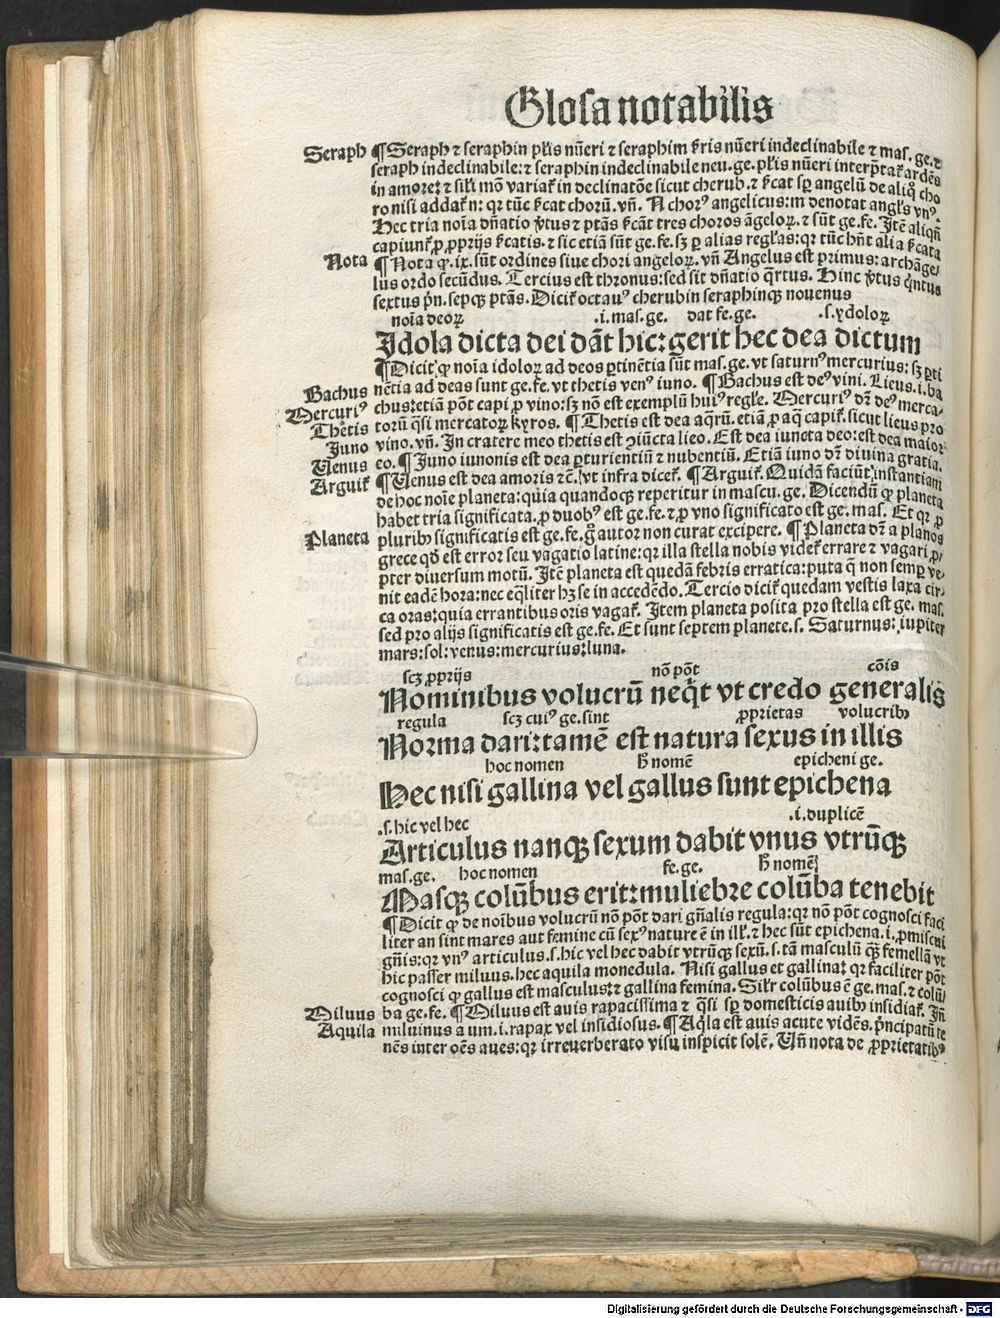 Glosa notabilis
Seraph ¶Seraph ⁊ seraphin pl̄is nūeri ⁊ seraphim
seraph indeclinabile: ⁊ seraphin indeclinabile neu. ge.
in amore: ⁊ variat̄ in declinatōe sicut cherub. ⁊ angelū de
ro nisi addat̄ chorū. vn̄. angelicus:
Hec tria noīa tres choros āgeloꝝ. ⁊ sūt ge. fe. Itē
capiunt̄ ⁊ sic etiā sūt ge. fe. sꝫ alias
Nota ¶Nota ꝙ .ix. sūt ordines siue chori angeloꝝ. vn̄ Angelus est primus: archāge/
lus ordo secūdus. Tercius est thronus: sed sit Hinc
sextus cherubin seraphinqꝫ nouenus
noīa deoꝝ .i. mas. ge. dat fe. ge. .s. ydoloꝝ
Idola dicta dei dāt hic: gerit hec dea dictum
¶Dicit ꝙ noīa idoloꝝ ad deos ꝑtinētia sūt mas. ge. vt saturnꝰ mercurius: sꝫ ꝑti
Bachus nētia ad deas sunt ge. fe. vt thetis venꝰ iuno. ¶Bachus est deꝰ vini. Lieus .i. ba
Mercuriꝰ chus: etiā pōt capi ꝓ vino: sꝫ nō est exemplū huiꝰ Mercuriꝰ dr̄ deꝰ merca-
Thetis toꝝ kyros. ¶Thetis est dea aq̄rū. etiā ꝓ aq̄ sicut lieus pro
Iuno vino. vn̄. In cratere meo thetis est lieo. Est dea iuncta deo: est dea maior
Venus eo. ¶Iuno iunonis est dea ꝑturientiū ⁊ nubentiū. Etiā iuno dr̄ diuina gratia.
Arguit̄ ¶Venus est dea amoris ⁊c̄. vt infra dicet̄. ¶Arguit̄. Quidā faciūt instantiam
de hoc noīe planeta: quia quandoqꝫ reperitur in mascu. ge. Dicendū ꝙ planeta
habet tria significata. ꝓ duobꝰ est ge. fe. ⁊ ꝓ vno significato est ge. mas. Et qꝛ ꝓ
Planeta pluribꝰ significatis est ge. fe. autor non curat excipere. ¶Planeta dr̄ a planos
grece qd̄ est error seu vagatio latine: qꝛ illa stella nobis videt̄ errare ⁊ vagari ꝓ/
pter diuersum motū. Itē planeta est quedā febris erratica: puta q̄ non semꝑ ve-
nit eadē hora: nec in accedēdo. Tercio dicit̄ quedam vestis laxa cir-
ca oras: quia errantibus oris vagat̄. Item planeta posita pro stella est ge. mas.
sed pro alijs significatis est ge. fe. Et sunt septem planete. s. Saturnus: iupiter
mars: sol: venus: mercurius: luna.
scꝫ ꝓprijs nō pōt cōis
Nominibus volucrū neq̄t vt credo generalis
regula scꝫ cuiꝰ ge. sint ꝓprietas volucribꝰ
Norma dari: tamē est natura sexus in illis
hoc nomen h̄ nomē epicheni ge.
Hec nisi gallina vel gallus sunt epichena
.s. hic vel hec .i. duplicē
Articulus nanqꝫ sexum dabit vnus vtrūqꝫ
mas. ge. hoc nomen fe. ge. h̄ nomē
Masqꝫ colūbus erit: muliebre colūba tenebit
¶Dicit ꝙ de noībus volucrū nō pōt dari gn̄alis regula: qꝛ nō pōt cognosci faci
liter an sint mares aut femine cū sexꝰ nature ē in ill̄. ⁊ hec sūt epichena .i. ꝓmiscui
gn̄is: qꝛ vnꝰ articulus .s. hic vel hec dabit vtrūqꝫ sexū. s. tā masculū qꝫ femellā vt
hic passer miluus. hec aquila monedula. Nisi gallus et gallina: qꝛ faciliter pōt
cognosci ꝙ gallus est masculus: ⁊ gallina femina. Sil̄r colūbus ē ge. mas. ⁊ colū/
Miluus ba ge. fe. ¶Miluus est auis rapacissima ⁊ q̄si sꝑ domesticis auibꝰ insidiat̄. In̄
Aquila miluinus a um .i. rapax vel insidiosus. ¶Aq̄la est auis acute vidēs. p̄ncipatū te
nēs inter oēs aues: qꝛ irreuerberato visu inspicit solē. Vn̄ nota de ꝓprietatibꝰ
Digitalisierung gefördert durch die Deutsche Forschungsgemeinschaft - DFG